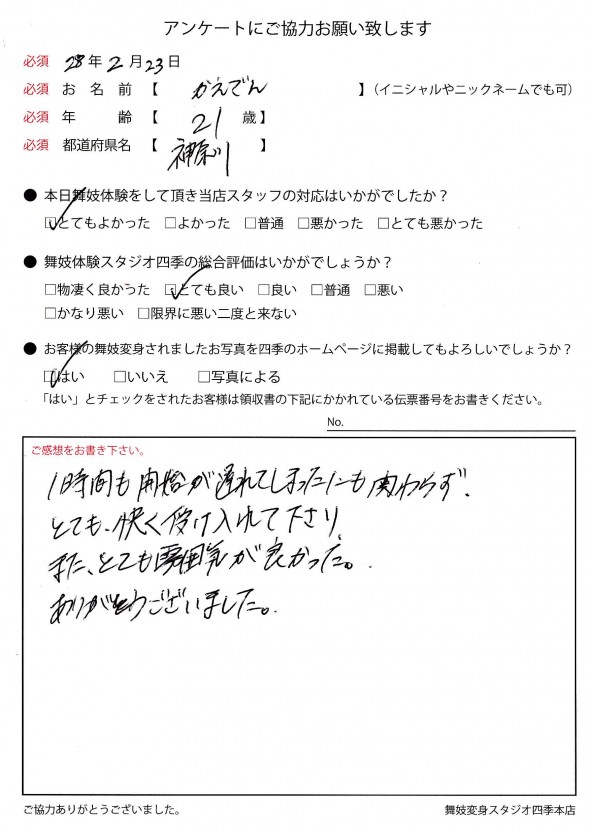 アンケートにご協力お願い致します
必須 28年2月23日
必須 お名前【 かえでん 】(イニシャルやニックネームでも可)
必須 年齢【 21歳】
必須 都道府県名【 神奈川 】
● 本日舞妓体験をして頂き当店スタッフの対応はいかがでしたか?
☑とてもよかった □よかった □普通 □悪かった □とても悪かった
● 舞妓体験スタジオ四季の総合評価はいかがでしょうか?
□物凄く良かった ☑とても良い □良い □普通 □悪い
□かなり悪い □限界に悪い二度と来ない
● お客様の舞妓変身されましたお写真を四季のホームページに掲載してもよろしいでしょうか?
☑はい □いいえ □写真による
「はい」とチェックをされたお客様は領収書の下記にかかれている伝票番号をお書きください。
No.
ご感想をお書き下さい。
1時間も開始が遅れてしまったにも関わらず、
とても、快く受け入れて下さり、
また、とても雰囲気が良かった。
ありがとうございました。
ご協力ありがとうございました。
舞妓変身スタジオ四季本店